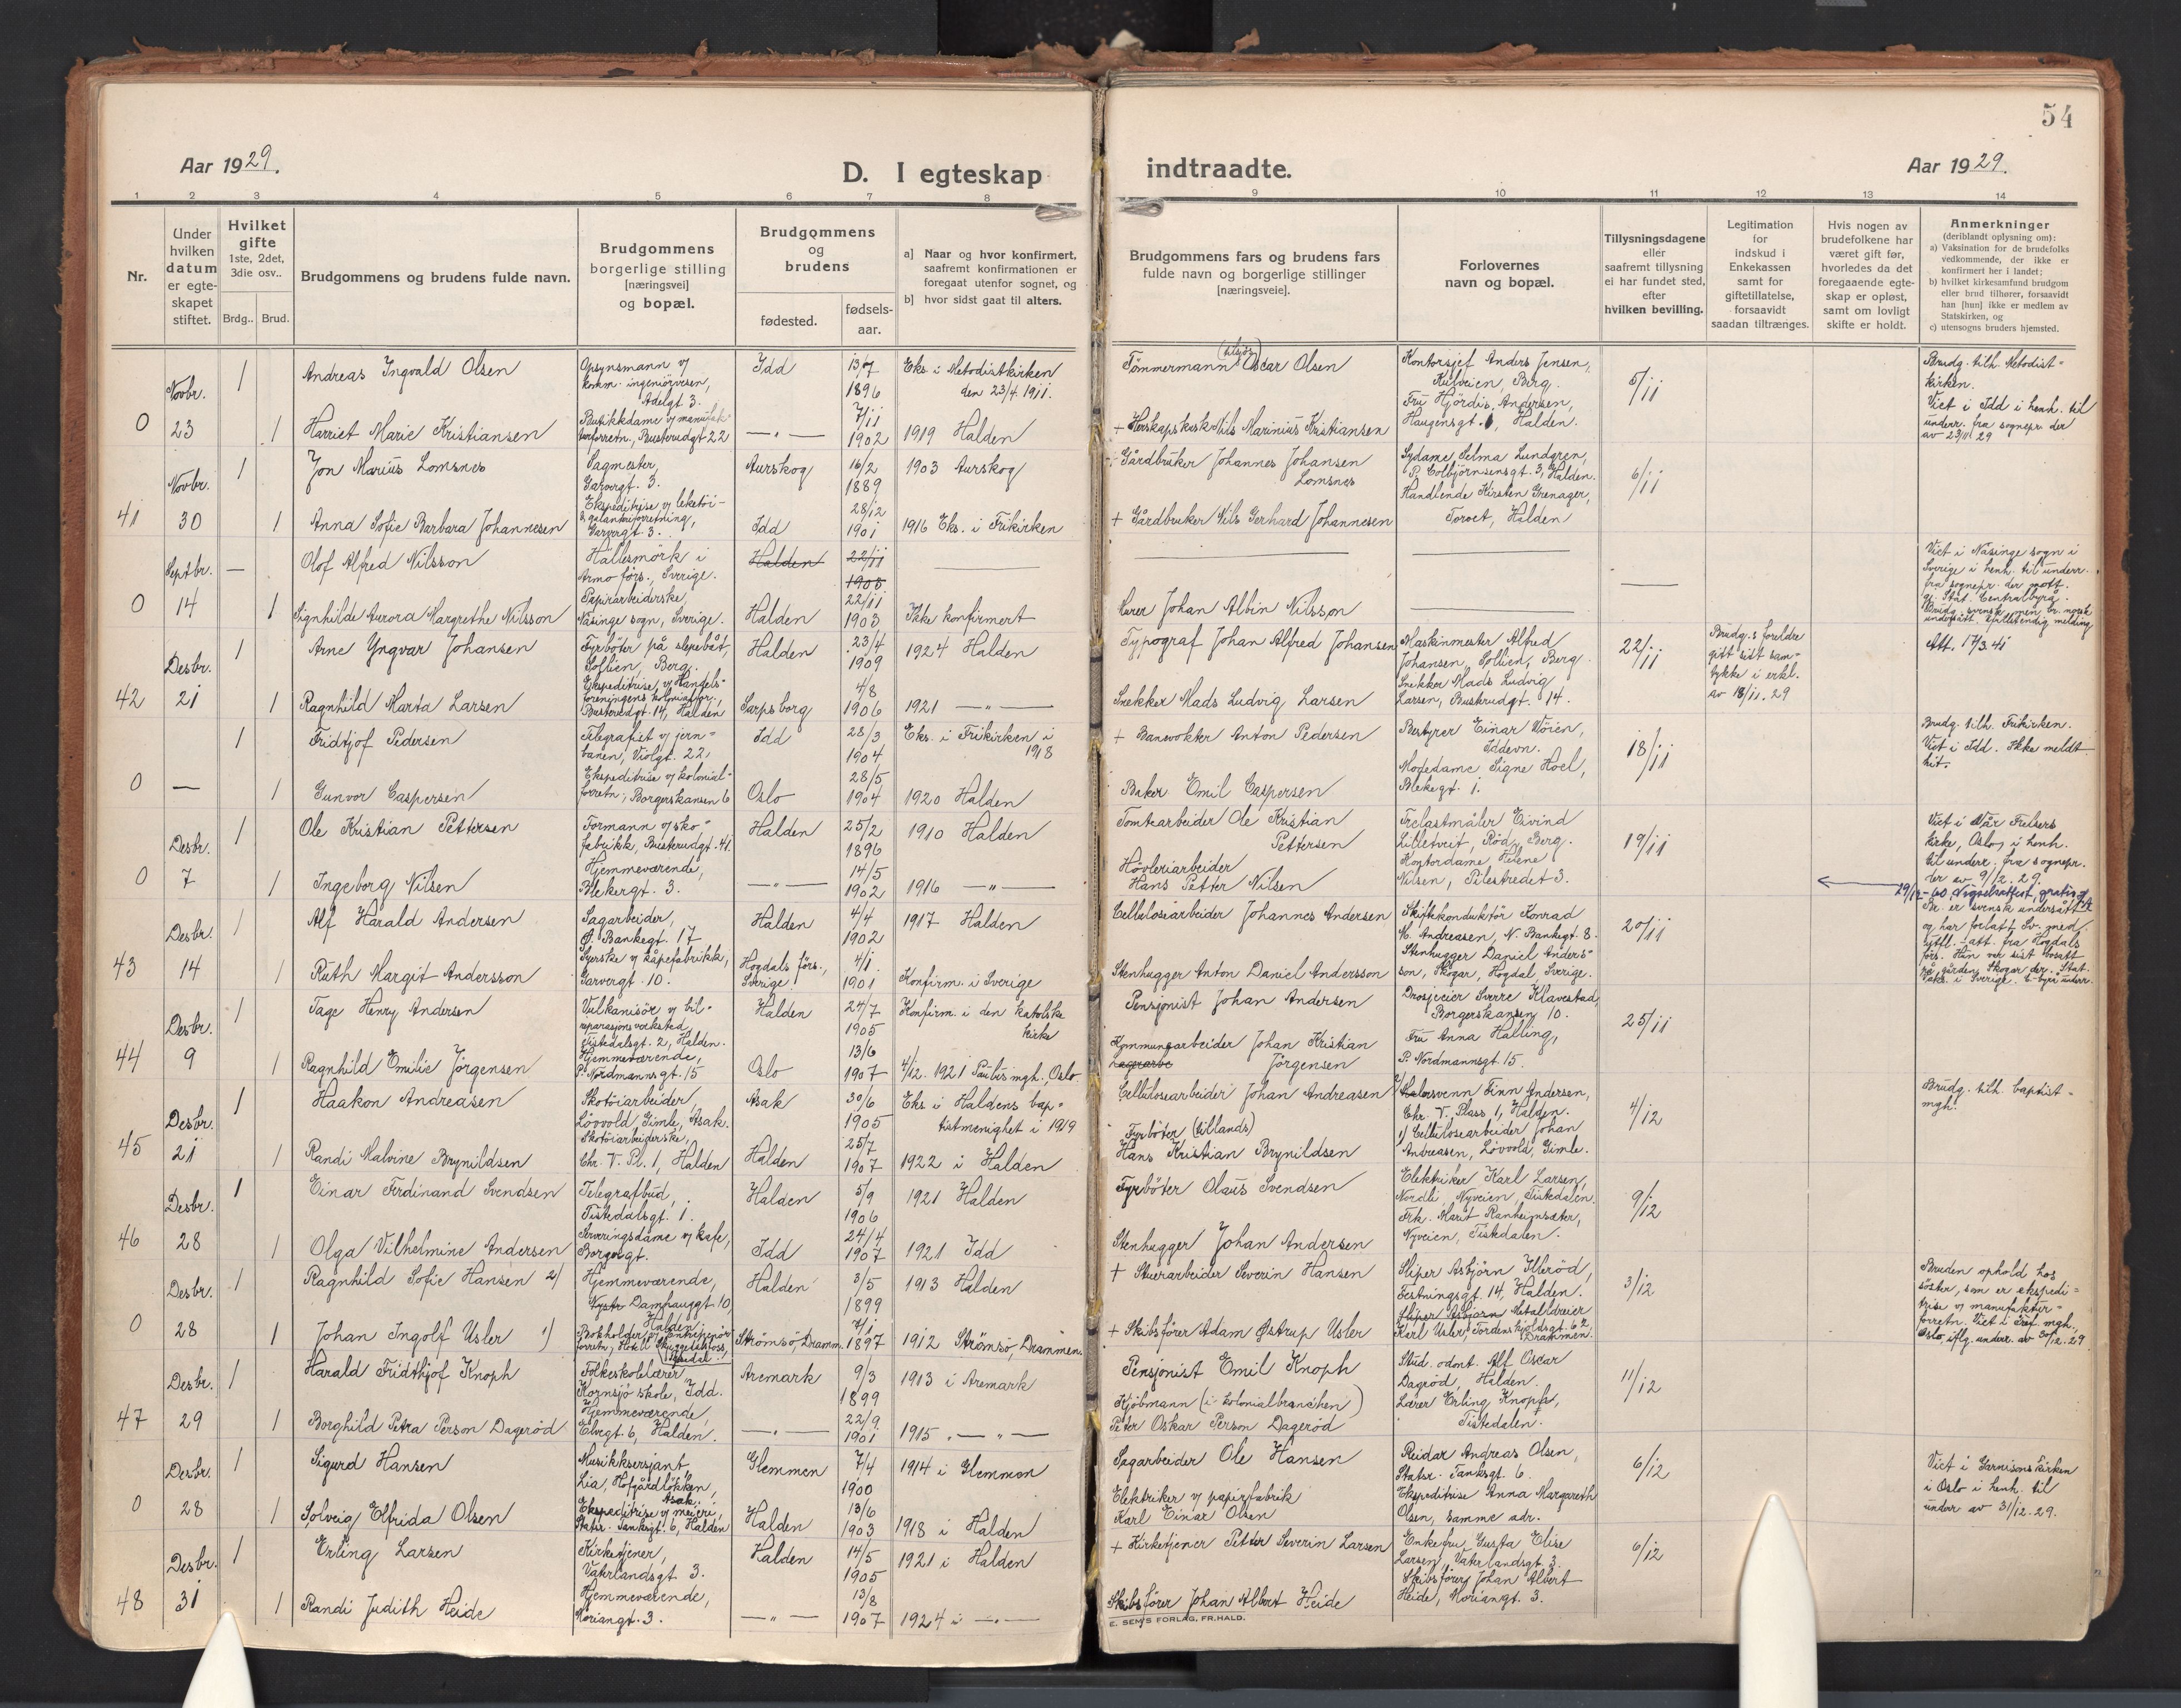 54
Aar 1929.
D. I egteskap indtraadte.
Aar 1929.
1 2 3 4 5 6 7 8 9 10 11 12 13 14
Nr.
Under hvilken datum er egteskapet stiftet.
Hvilket gifte 1ste, 2det, 3die osv..
Brdg.. Brud.
Brudgommens og brudens fulde navn.
Brudgommens borgerlige stilling [næringsvei] og bopæl.
Brudgommens og brudens
fødested.
fødsels-aar.
a] Naar og hvor konfirmert, saafremt konfirmationen er foregaat utenfor sognet, og
b] hvor sidst gaat til alters.
Brudgommens fars og brudens fars fulde navn og borgerlige stillinger [næringsveie].
Forlovernes navn og bopæl.
Tillysningsdagene eller saafremt tillysning ei har fundet sted, efter hvilken bevilling.
Legitimation for indskud i Enkekassen samt for giftetillatelse, forsaavidt saadan tiltrænges.
Hvis nogen av brudefolkene har været gift før, hvorledes da det foregaaende egteskap er opløst, samt om lovligt skifte er holdt.
Anmerkninger
(deriblandt oplysning om):
a) Vaksination for de brudefolks vedkommende, der ikke er konfirmert her i landet;
b) hvilket kirkesamfund brudgom eller brud tilhører, forsaavidt han [hun] ikke er medlem av Statskirken, og
c) utensogns bruders hjemsted.
Novbr. 1 Andreas Ingvald Olsen
Opsynsmann v/ komm. ingeniørvesen, Adelgt 3.
Idd 13/7 1896 Eks. i Metodistkirken den 23/4 1911.
Tömmermann Oscar Olsen
Kontorsjef Anders Jensen, Kulveien, Berg.
Fru Hjördis Andersen, Haugensgt. , Halden.
5/11
Brudg. tilh. Metodistkirken.
Viet i Idd i henh. til underr. fra sognepr. der av 23/11 29
0 23 1 Harriet Marie Kristiansen
Butikkdame v/ manufakturforretn., Busterudgt 22
—"— 7/11 1902 1919 Halden
+ Herskapskusk Nils Marinius Kristiansen
Novbr. 1 Jon Marius Lomsnes
Sagmester, Garvergt. 3.
Aurskog 16/2 1889 1903 Aurskog
Gårdbruker Johannes Johansen Lomsnes
Sydame Selma Lundgren, P. Colbjörnsensgt. 3, Halden.
Handlende Kirsten Grenager, Torvet, Halden
6/11
41 30 1 Anna Sofie Barbara Johannesen
Ekspeditrise v/ leketöi- & galanteriforretning, Garvergt 3.
Idd 28/12 1901 1916 Eks. i Frikirken
+ Gårdbruker Nils Gerhard Johannesen
Septbr. — Olof Alfred Nilsson
Hällesmörk i Armo förs., Sverige.
Halden 22/11 1905
Viet i Näsinge sogn i Sverige i henh. til underr. fra sognepr. der mott. gj. Stat. Centralbyrå.
0 14 1 Signhilde Aurora Margrethe Nilsson
Papirarbeiderske, Näsinge sogn, Sverige.
Halden 22/11 1903 Ikke konfirmert
Murer Johan Albin Nilsson
Desbr. 1 Arne Yngvar Johansen
Fyrböter på slepebåt, Solli​en, Berg.
Halden 23/4 1909 1924 Halden
Typograf Johan Alfred Johansen
Maskinmester Alfred Johansen, Sollien, Berg.
Snekker Mads Ludvig Larsen, Busterudgt. 14.
22/11
Brudg.s foreldre gitt sitt samtykke i erkl. av 18/11.29
Att. 17/3 41
42 21 1 Ragnhild Marta Larsen
Ekspeditrise v/ Handelsforeningens kolonialfor., Busterudgt. 14, Halden
Sarpsborg 4/8 1906 1921 —"—
Snekker Mads Ludvig Larsen
1 Fridtjof Pedersen
Telegrafist v/ jernbanen, Violgt. 22.
Idd 28/3 1904 Eks. i Frikirken i 1918
+ Banevokter Anton Pedersen
Bestyrer Einar Moien, Iddevn.
Motedame Signe Hoel, Blekegt. 1.
18/11
Brudg. tilh. Frikirken.
Viet i Idd. Ikke meldt hit.
0 — 1 Gunvor Caspersen
Ekspeditrise v/ kolonialforretn., Borgerskansen 6
Oslo 28/5 1904 1920 Halden
Baker Emil Caspersen
Desbr. 1 Ole Kristian Pettersen
Formann v/ skofabrikk, Busterudgt. 41.
Halden 25/2 1896 1910 Halden
Tomtearbeider Ole Kristian Pettersen
Trelastmåler Eivind Lilletveit, Röd, Berg.
Kontordame Helene Nilsen, Pilestredet 3.
19/11
Viet i Vår Frelsers kirke, Oslo, i henh. til underr. fra sognepr. der av 9/12. 29.
0 7 1 Ingeborg Nilsen
Hjemmeværende, Blekergt. 3.
—"— 14/5 1902 1916 —"—
Hövleriarbeider Hans Petter Nilsen
29/12-60. Vigselsattest, gratis.
Desbr. 1 Alf Harald Andersen
Sagarbeider, Ø. Bankegt. 17
Halden 4/4 1902 1917 Halden
Cellulosearbeider Johannes Andersen
Skiftekonduktör Konrad M. Andreasen, N. Bankegt 8.
Stenhugger Daniel Andersson, Skogar, Hogdal Sverige.
20/11
Br. er svensk undersått og har forlatt Sv. med utfl.-att. fra Hogdals förs. Hun var sist bosatt på gården Skogar der.
43 14 1 Ruth Margit Andersson
Syerske v/ kåpefabrikk, Garvergt. 10.
Hogdals förs., Sverige 4/1 1901 Konfirm. i Sverige
Stenhugger Anton Daniel Andersson
Desbr. 1 Tage Henry Andersen
Vulkanisör v/ bilreparasjonsverksted, Tistedalsgt. 2, Halden.
Halden 24/7 1905 Konfirm. i den katolske kirke
Pensjonist Johan Andersen
Drosjeeier Sverre Klavestad, Borgerskansen 10.
Fru Anna Halling, P. Nordmannsgt. 15.
25/11
44 9 1 Ragnhild Emilie Jörgensen
Hjemmeværende, P. Nordmannsgt. 15
Oslo 13/6 1907 4/12. 1921 Paulus mgh., Oslo
Kommunearbeider Johan Kristian Jörgensen
Desbr. 1 Haakon Andreasen
Skotöiarbeider, Lövvold Gimle, Asak.
Asak 30/6 1905 Eks. i Haldens baptistmenighet i 1919
Cellulosearbeider Johan Andreasen
2/ Malersvenn Finn Andersen, Chr. V. Plass 1, Halden.
1) Cellulosearbeider Johan Andreasen, Lövvold, Gimle.
4/12
Brudg. tilh. baptistmgh.
45 21 1 Randi Malvine Brynildsen
Skotöiarbeiderske, Chr. V. Pl. 1, Halden
Halden 25/7 1907 1922 i Halden
Fyrböter (tillands) Hans Kristian Brynildsen
Desbr. 1 Einar Ferdinand Svendsen
Telegrafbud, Tistedalsgt. 1.
Halden 5/9 1906 1921 Halden
Fyrböter Olaus Svendsen
Elektriker Karl Larsen, Nordli, Nyveien, Tistedalen.
Frk. Marit Ranheimsæter, Nyveien, Tistedalen.
9/12
46 28 1 Olga Vilhelmine Andersen
Serveringsdame v/ kafe, Borgergt.
Idd 24/4 1907 1921 Idd
Stenhugger Johan Andersen
Desbr. 1 Ragnhild Sofie Hansen 2)
Hjemmeværende, Damhauggt. 10, Halden
Halden 3/5 1899 1913 Halden
+ Stuerarbeider Severin Hansen
Sliper Asbjörn Illeröd, Festningsgt. 14, Halden.
Metalldreier Karl Usler, Tordenskjoldsgt. 62, Drammen.
3/12
Bruden ophold hos söster, som er ekspeditrise v/ manufakturforretn. Viet i Tref. mgh., Oslo, iflg. underr. av 30/12. 29.
0 28 1 Johan Ingolf Usler 1)
Bokholder v/ entreprenörforretn.,
Strömsö, Dramm. 7/1 1897 1912 Strömsö, Drammen
+ Skibsförer Adam Østrup Usler
Desbr. 1 Harald Fridthjof Knoph
Folkeskolelærer, Kornsjö skole, Idd.
Aremark 9/3 1899 1913 i Aremark
Pensjonist Emil Knoph
Stud. odont. Alf Oscar Dagröd, Halden.
Lærer Erling Knoph, Tistedalen.
11/12
47 29 1 Borghild Petra Person Dageröd
Hjemmeværende, Elvegt. 6, Halden.
—"— 22/9 1901 1915 —"—
Kjöbmann (i kolonialbranchen) Peter Oskar Person Dageröd
Desbr. 1 Sigurd Hansen
Musikksersjant, Lia, Hofgårdlökken, Asak.
Glemmen 7/4 1900 1914 i Glemmen
Sagarbeider Ole Hansen
Reidar Andreas Olsen, Statsr. Tanksgt. 6.
Ekspeditrise Anna Margareth Olsen, samme adr.
6/12
Viet i Garnisonskirken i Oslo i henh. til underr av 31/12. 29.
0 28 1 Solveig Elfrida Olsen
Ekspeditrise v/ meieri, Statsr. Tanksgt. 6, Halden
Halden 13/6 1903 1918 i Halden
Elektriker v/ papirfabrik Karl Einar Olsen
Desbr. 1 Erling Larsen
Kirketjener, Vaterlandsgt 3.
Halden 14/5 1905 1921 i Halden
+ Kirketjener Petter Severin Larsen
Enkefru Gusta Elise Larsen, Vaterlandsgt. 3.
Skibsförer Johan Albert Heide, Moriangt. 3.
6/12
48 31 1 Randi Judith Heide
Hjemmeværende, Moriangt. 3.
—"— 13/8 1907 1924 i —"—
Skibsförer Johan Albert Heide
E. SEM'S FORLAG, FR.HALD.